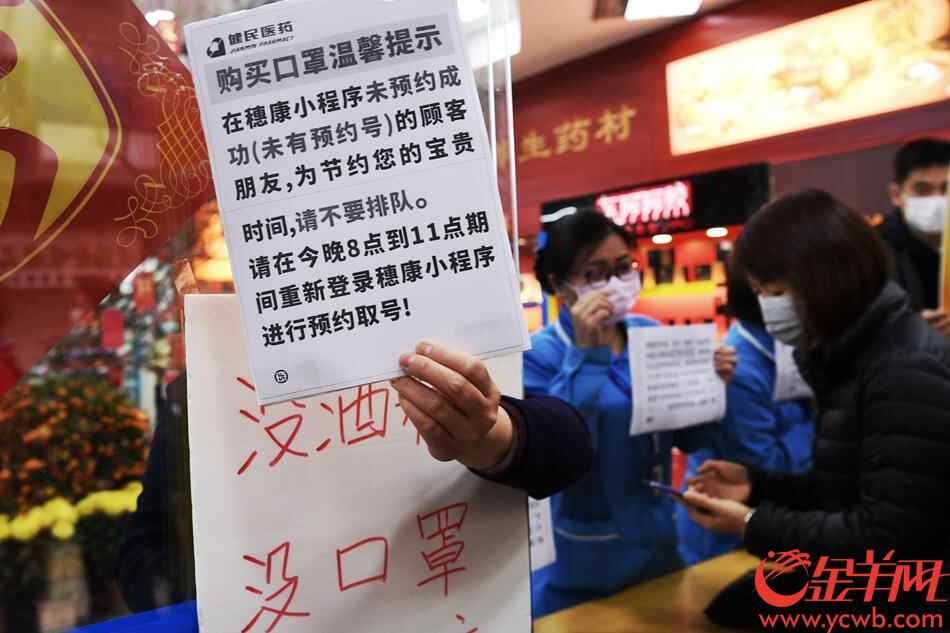 健民医药
JIANMIN PHARMACY
购买口罩温馨提示
在穗康小程序未预约成
功(未有预约号)的顾客
朋友,为节约您的宝贵
时间,请不要排队。
请在今晚8点到11点期
间重新登录穗康小程序
进行预约取号!
没酒
没口罩
生药材
金羊网
www.ycwb.com